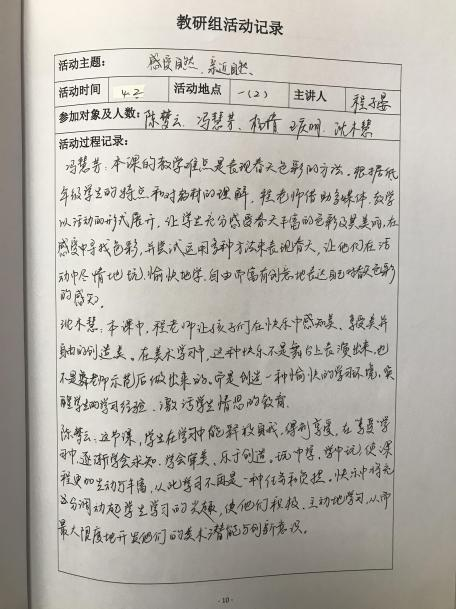 教研组活动记录
活动主题： 感受自然、亲近自然
活动时间 4.2 活动地点 一（2） 主讲人 程子晏
参加对象及人数：陈梦云 冯慧芳 杨倩 沈木慧
活动过程记录：
冯慧芳：本课的教学难点是表现春天色彩的方法。根据低
年级学生的特点和对教材的理解，程老师借助多媒体，教学
以活动的形式展开，让学生充分感受春天丰富的色彩及其美丽，在
感受中寻找色彩，并尝试运用多种方法来表现春天，让他们在活
动中尽情地玩、愉快地学，自由而富有创意地表达自己对春天色彩
的感知。
沈木慧：本课中，程老师让孩子们在快乐中感知美、享受美并
自由的创造美。在美术学习中，这种快乐不是舞台上表演出来，也
不是靠老师示范后做出来的。而是创造一种愉快的学习环境，唤
醒学生的学习经验，激活学生情思的教育。
陈梦云：这节课，学生在学习中能释放自我，得到享受，在享受学
习中，逐渐学会求知、学会审美、乐于创造。玩中学，学中玩，使课
程更加生动与丰富，从此学习不再是一种任务和负担。快乐中将充
分调动起学生学习的兴趣，使他们积极、主动地学习，从而
最大限度地开发他们的美术潜能与创新意识。
- 10 -